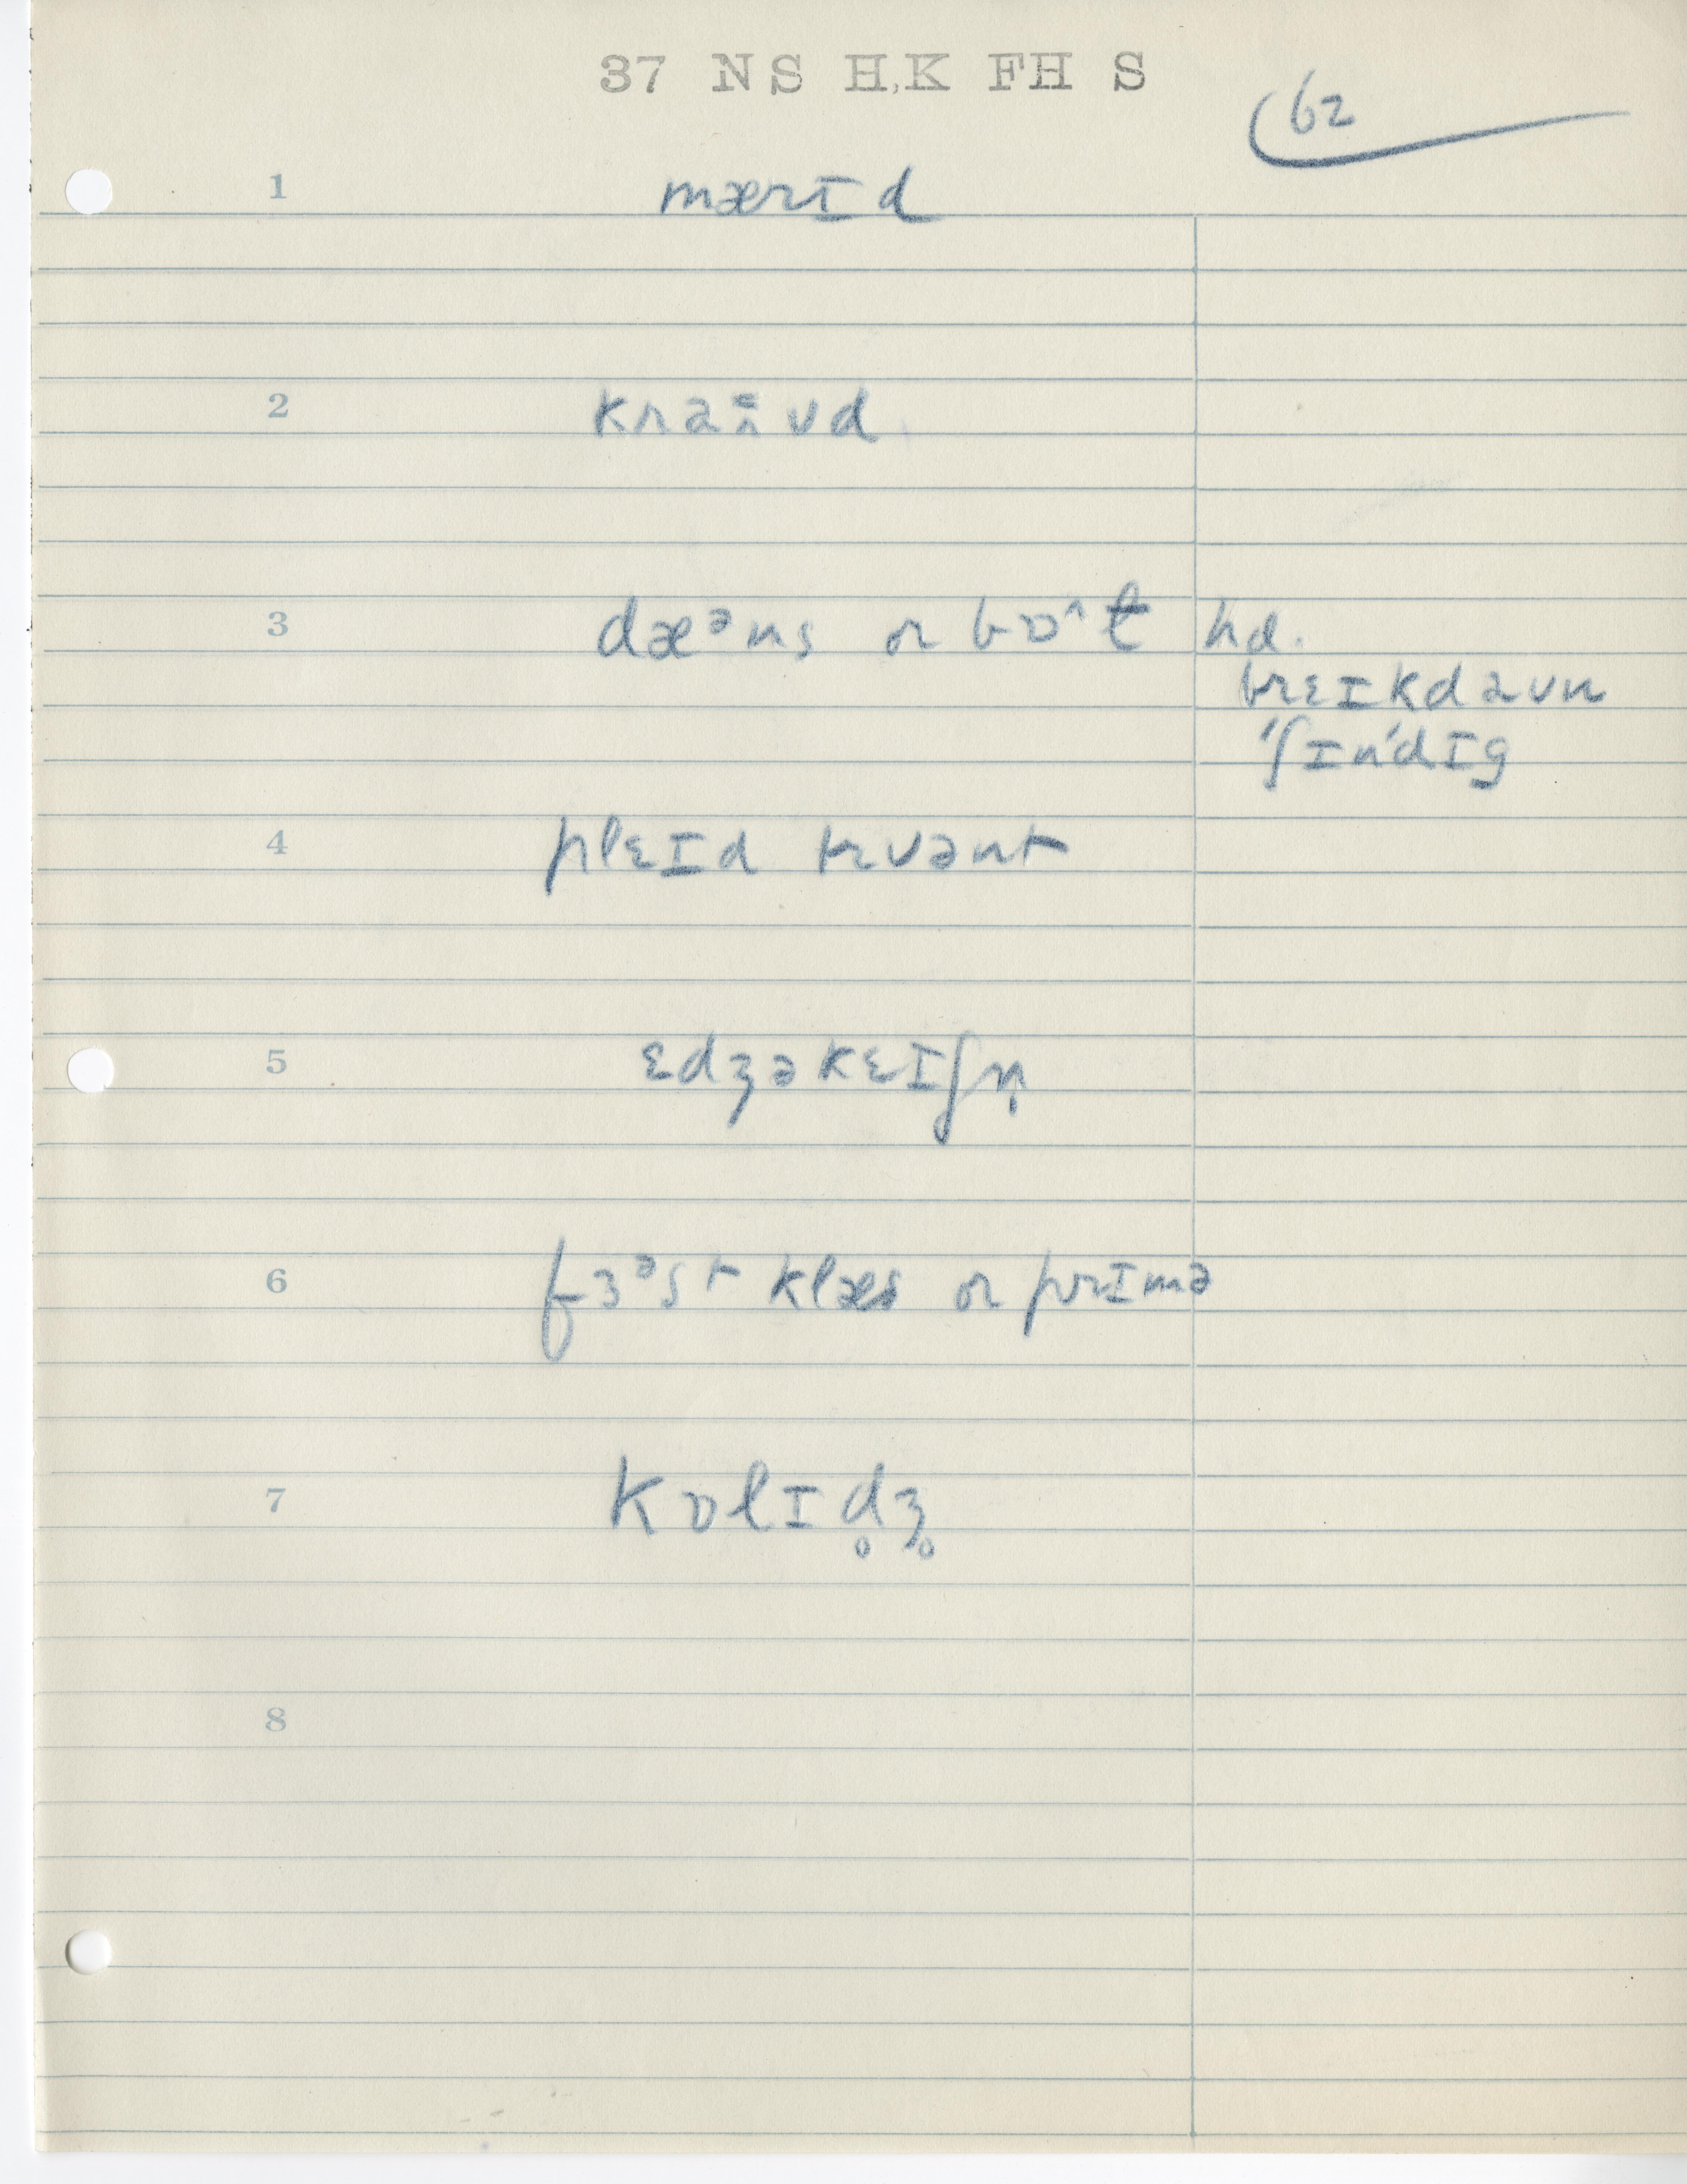 37 NS H.K FH S
62
1 mærɪd
2 kraʊd
3 dæᵊns or bɒ^ɫ hd.
breɪkdaʊn
'ʃɪn'dɪg
4 plɛɪd truənt
5 ɛdʒəkɛɪʃn̩
6 fɜᵊst klæs or prɪmə
7 kɒlɪd̥ʒ̥
8